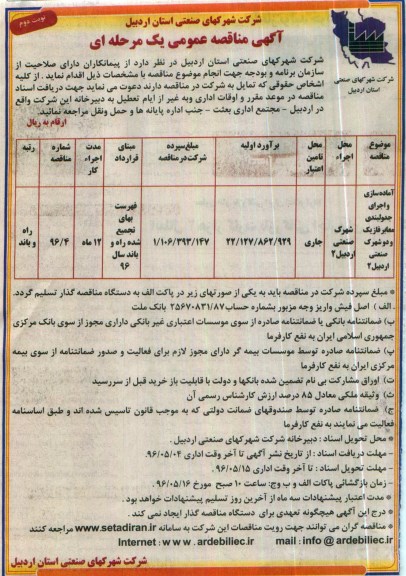 شرکت شهرکهای صنعتی استان اردبیل
نوبت دوم
آگهی مناقصه عمومی یک مرحله ای
شرکت شهرکهای صنعتی
استان اردبیل
شرکت شهرکهای صنعتی استان اردبیل در نظر دارد از پیمانکاران دارای صلاحیت از
سازمان برنامه و بودجه جهت انجام موضوع مناقصه با مشخصات ذیل اقدام نماید . از کلیه
اشخاص حقوقی که تمایل به شرکت در مناقصه دارند دعوت می نماید جهت دریافت اسناد
مناقصه در موعد مقرر و اوقات اداری وبه غیر از ایام تعطیل به دبیرخانه این شرکت واقع
در اردبیل - مجتمع اداری بعثت - جنب اداره پایانه ها و حمل ونقل مراجعه نمائید.
ارقام به ریال
موضوع مناقصه
محل اجراء
محل تامین اعتبار
برآورد اولیه
مبلغ سپرده شرکت در مناقصه
مبنای قرارداد
مدت اجراء کار
شماره مناقصه
رتبه
آماده سازی واجرای جدولبندی معابر فازیک ودو شهرک صنعتی اردبیل۲
شهرک صنعتی اردبیل۲
جاری
۲۲/۱۲۷/۸۶۲/۹۲۹
۱/۱۰۶/۳۹۳/۱۴۷
فهرست بهای تجمیع شده راه و باند سال ۹۶
۱۲ ماه
۹۶/۴
راه و باند
* مبلغ سپرده شرکت در مناقصه باید به یکی از صورتهای زیر در پاکت الف به دستگاه مناقصه گذار تسلیم گردد.
الف ) اصل فیش واریز وجه مزبور بشماره حساب۲۵۶۷۰۸۳۱/۸۷ بانک ملت
ب) ضمانتنامه بانکی یا ضمانتنامه صادره از سوی موسسات اعتباری غیر بانکی دارای مجوز از سوی بانک مرکزی
جمهوری اسلامی ایران به نفع کارفرما
پ) ضمانتنامه صادره توسط موسسات بیمه گر دارای مجوز لازم برای فعالیت و صدور ضمانتنامه از سوی بیمه
مرکزی ایران به نفع کارفرما
ت) اوراق مشارکت بی نام تضمین شده بانکها و دولت با قابلیت باز خرید قبل از سررسید
ث) وثیقه ملکی معادل ۸۵ درصد ارزش کارشناس رسمی آن
ج) ضمانتنامه صادره توسط صندوقهای ضمانت دولتی که به موجب قانون تاسیس شده اند و طبق اساسنامه
فعالیت می نمایند به نفع کارفرما
* محل تحویل اسناد : دبیرخانه شرکت شهرکهای صنعتی اردبیل .
- مهلت دریافت اسناد : از تاریخ نشر آگهی تا آخر وقت اداری ۹۶/۰۵/۰۴.
- مهلت تحویل اسناد : تا آخر وقت اداری ۹۶/۰۵/۱۵.
- زمان بازگشائی پاکات الف و ب وج: ساعت ۱۰ صبح مورخ ۹۶/۰۵/۱۶.
* مدت اعتبار پیشنهادات سه ماه از آخرین روز تسلیم پیشنهادات خواهد بود .
* درج این آگهی هیچگونه تعهدی برای دستگاه مناقصه گذار ایجاد نمی کند .
* مناقصه گران می توانند جهت رویت مناقصات این شرکت به سامانه www.setadiran.ir مراجعه کنند
Internet : w w w . ardebiliec-ir mail : info @ ardebiliec-ir
شرکت شهرکهای صنعتی استان اردبیل